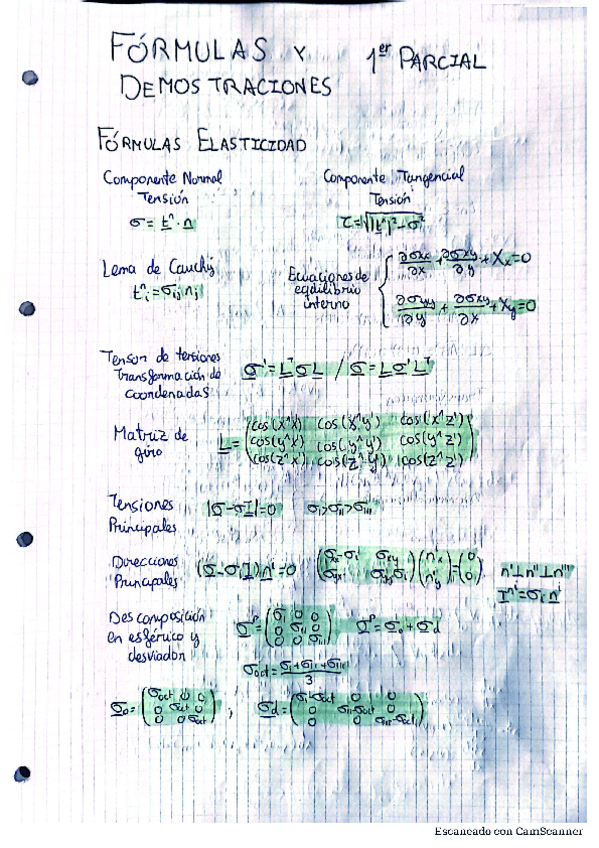 FÓRMULAS Y 1er PARCIAL
DEMOSTRACIONES
FÓRMULAS ELASTICIDAD
Componente Normal
Tensión
σ = t^n · n
Componente Tangencial
Tensión
τ = √(|t^n|² - σ²)
Lema de Cauchy
t_i^n = σ_ij n_j
Ecuaciones de
equilibrio
interno
∂σxx/∂x + ∂σxy/∂y + Xx = 0
∂σyy/∂y + ∂σxy/∂x + Xy = 0
Tensor de tensiones
transformación de
coordenadas
σ' = L^T σ L / σ = L σ' L^T
Matriz de
giro
L = ( cos(x^x') cos(x^y') cos(x^z')
cos(y^x') cos(y^y') cos(y^z')
cos(z^x') cos(z^y') cos(z^z') )
Tensiones
Principales
|σ - σI| = 0 σI > σII > σIII
Direcciones
Principales
(σ - σ_i I) n^i = 0
( σxx-σi σxy
σyx σyy-σi ) ( n^i_x
n^i_y ) = ( 0
0 )
n' ⊥ n'' ⊥ n'''
= σ_i n^i
Descomposición
en esférico y
desviador
σ^P = ( σI 0 0
0 σII 0
0 0 σIII )
σ^P = σo + σd
σoct = (σI + σII + σIII)/3
σo = ( σoct 0 0
0 σoct 0
0 0 σoct ) ;
σd = ( σI-σoct 0 0
0 σII-σoct 0
0 0 σIII-σoct )
Escaneado con CamScanner